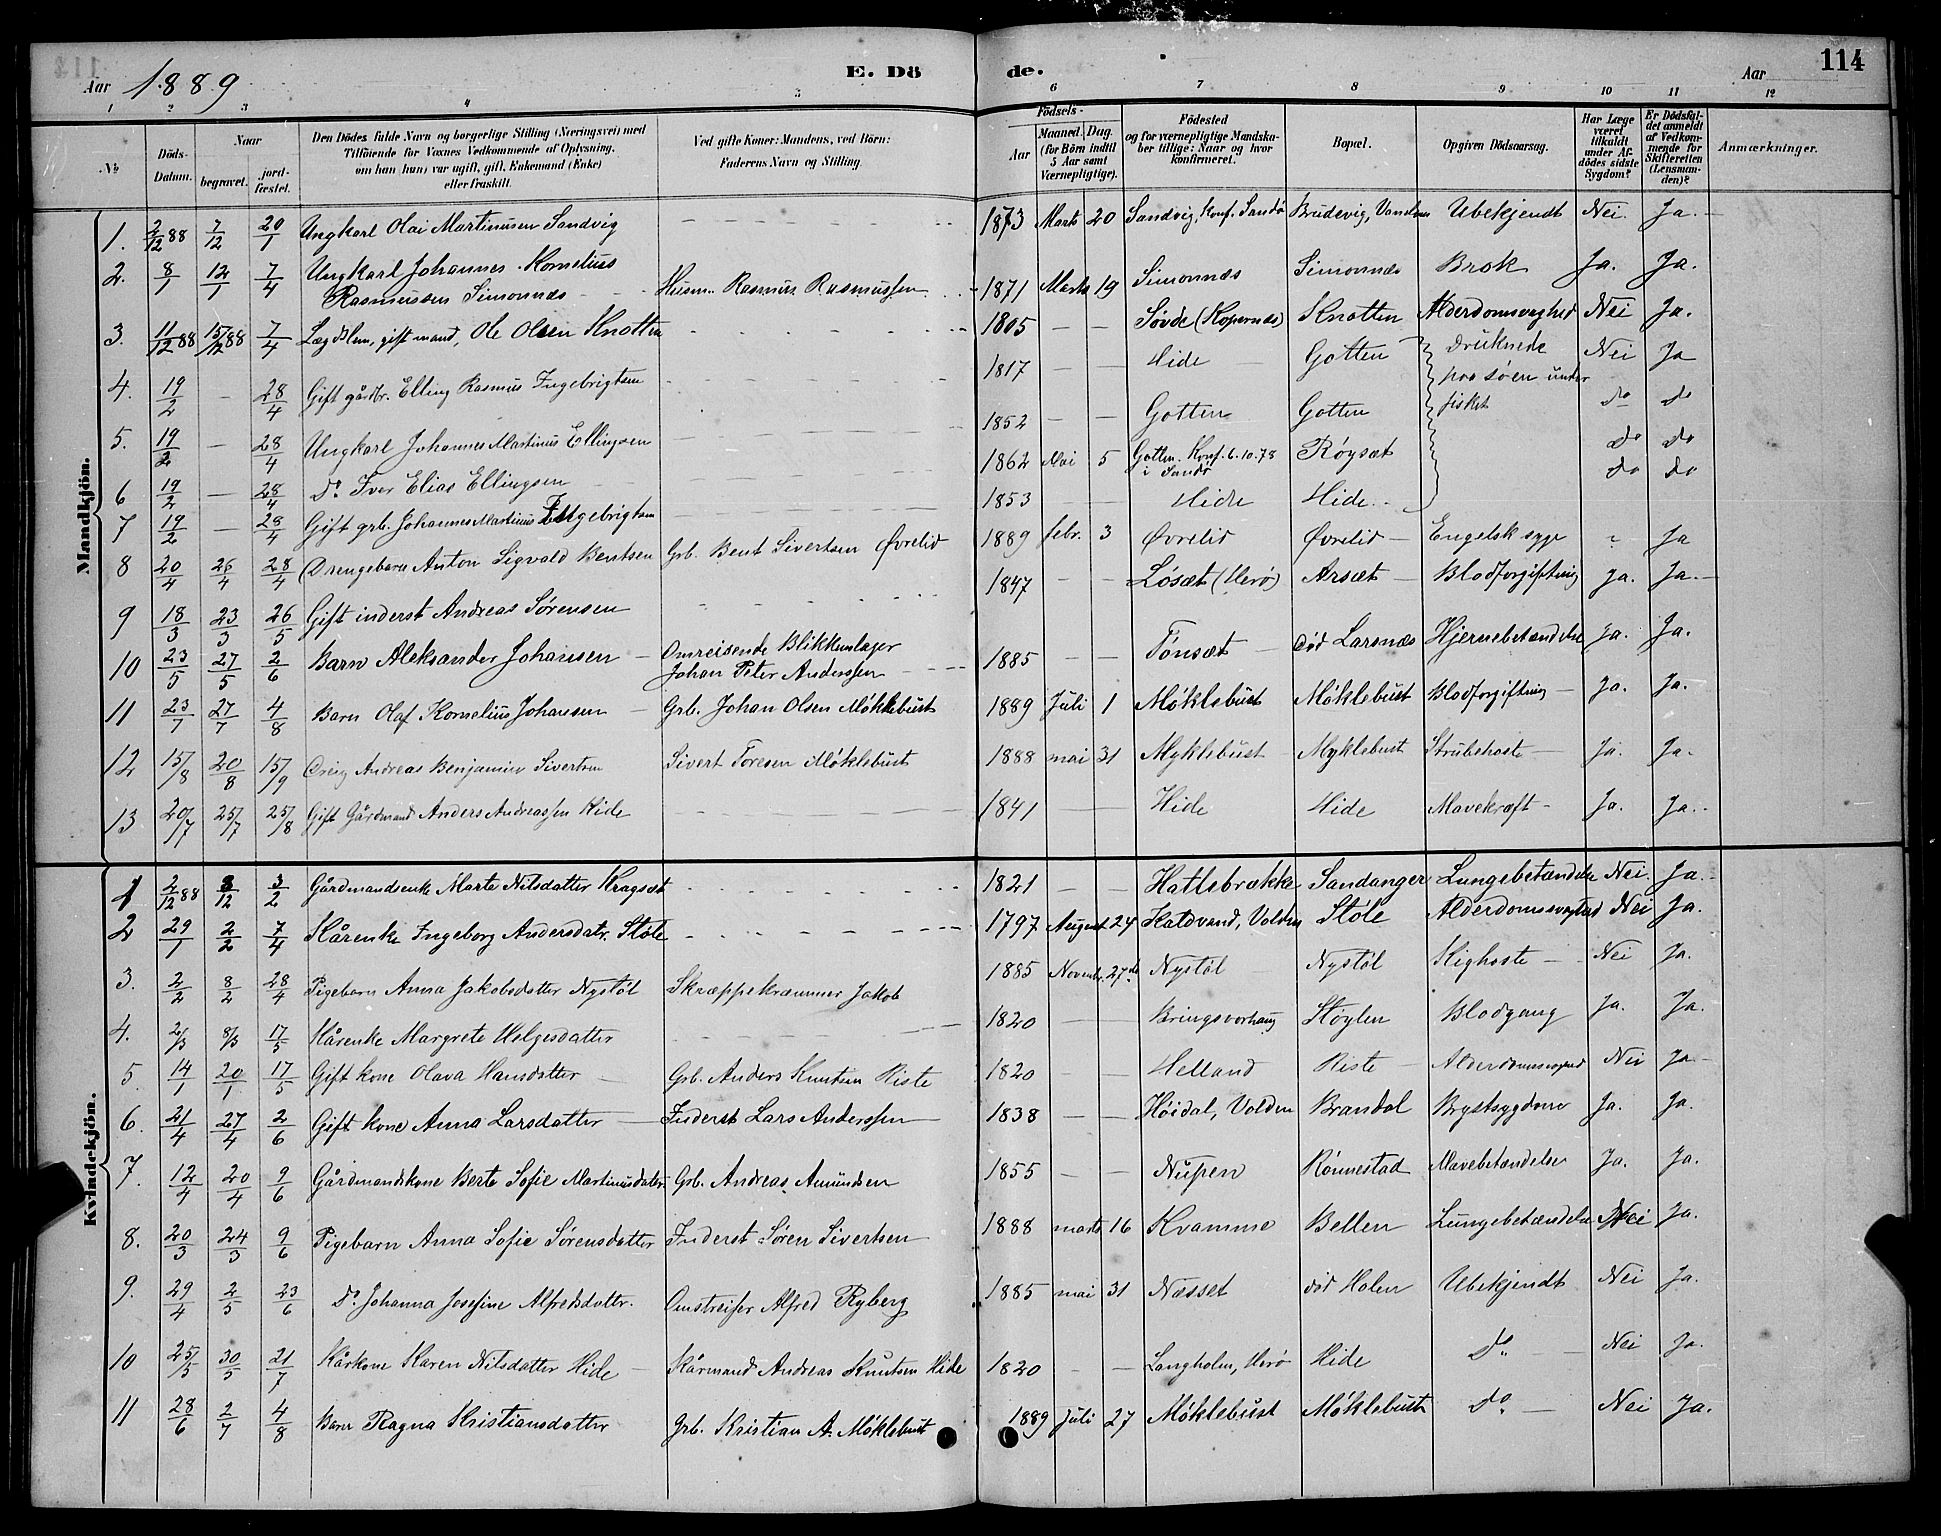 Aar 1889 E. Dö de. Aar 114
1 2 3 4 5 6 7 8 9 10 11 12
No.
Döds-Datum.
Naar
begravet.
jord-fæstet.
Den Dödes fulde Navn og borgerlige Stilling (Næringsvei) med
Tilföiende for Voxnes Vedkommende af Oplysning,
om han (hun) var ugift, gift, Enkemand (Enke)
eller fraskilt.
Ved gifte Koner: Mandens, ved Börn:
Faderens Navn og Stilling.
Födsels-
Aar
Maaned. Dag.
(for Børn indtil
5 Aar samt
Værnepligtige).
Födested
og for værnepligtige Mandska-
ber tillige: Naar og hvor
konfirmeret.
Bopæl.
Opgiven Dödsaarsag.
Har Læge
været
tilkaldt
under Af-
dödes sidste
Sygdom?
Er Dödsfal-
det anmeldt
af Vedkom-
mende for
Skifteretten
(Lensman-
den)?
Anmærkninger.
Mandkjön.
1. 2/12 88 7/12 20/1 Ungkarl Olai Martinusen Sandvig 1873 Marts 20 Sandvig, Konf. Sandø Brudevig, Ubekjendt Nei. Ja.
2. 8/1 12/1 7/4 Ungkarl Johannes Kornelius
Rasmussen Simonnæs Husm. Rasmus Rasmussen 1871 Marts 19 Simonnæs Simonnæs Brok Ja. Ja.
3. 11/12 88 15/12 88 7/4 Lægdslem, gift mand, Ole Olsen Knotten 1805 Søvde (Kopernæs) Knotten Alderdomsvaghed Nei Ja.
4. 19/2 28/4 Gift gårdbr. Elling Rasmus Ingebrigtsen 1817 Hide Gotten Druknede Nei Ja
paa søen under
fisket
5. 19/2 28/4 Ungkarl Johannes Martinus Ellingsen 1852 Gotten Gotten do do
6 19/2 28/4 Do Iver Elias Ellingsen 1862 Mai 5 Gotten Konf. 6.10.78
i Sandø Røysæt do do
7 19/2 28/4 Gift grb. Johannes Martinus Ingebrigtsen 1853 Hide Hide do do
8 20/4 26/4 28/4 Drengebarn Anton Sigvald Bentsen Grb. Bent Sivertsen Øvrelid 1889 febr. 3 Øvrelid Øvrelid Engelsk syge Ja
9 18/3 23/3 26/5 Gift inderst Andreas Sørensen 1847 Løsæt (Herø) Arsæt Blodforgiftning Ja. Ja.
10 23/5 27/5 2/6 Barn Aleksander Johansen Omreisende Blikkenslager
Johan Peter Anderssen 1885 Tønsæt død Larsnæs Hjernebetændelse Ja. Ja.
11 23/7 27/7 4/8 Barn Olaf Kornelius Johansen Grb. Johan Olsen Møklebust 1889 Juli 1 Møklebust Møklebust Blodforgiftning Ja. Ja.
12 15/8 20/8 15/9 Dreng Andreas Benjamin Sivertsen Sivert Toresen Møklebust 1888 mai 31 Myklebust Myklebust Strubehoste Ja. Ja.
13 20/7 25/7 25/8 Gift Gårdmand Anders Andreassen Hide 1841 Hide Hide Mavekræft Ja. Ja.
Kvindekjön.
1 2/12 88 8/12 3/2 Gårdmandsenke Marte Nilsdatter Kragsæt 1821 Hatlebrække Sandanger Lungebetændelse Nei. Ja.
2 29/1 2/2 7/4 Kårenke Ingeborg Andersdatr. Støle 1797 August 24 Katdvand, Volden Støle Alderdomssvaghed Nei Ja.
3. 2/2 8/2 28/4 Pigebarn Anna Jakobsdatter Nystøl Skræppekræmmer Jakob 1885 Novembr. 27de Nystøl Nystøl Kighoste Nei Ja.
4. 2/3 8/3 17/5 Kårenke Margrete Helgesdatter 1820 Bringsvorhaug Støylen Blodgang Ja. Ja.
5. 14/1 20/1 17/5 Gift kone Olava Hansdatter Grb. Anders Knutsen Riste 1820 Helland Riste Alderdomssvaghed Nei Ja
6. 21/4 27/4 2/6 Gift kone Anna Larsdatter Inderst Lars Anderssen 1838 Høidal, Volden Brandal Brystsygdom Ja. Ja.
7. 12/4 20/4 9/6 Gårdmandskone Berte Sofie Martinusdatter Grb. Andreas Amundsen 1855 Nupen Rønnestad Mavebetændelse Ja. Ja.
8. 20/3 24/3 9/6 Pigebarn Anna Sofie Sørensdatter Inderst Søren Sivertsen 1888 marts 16 Kvamme Bellen Lungebetændelse Nei Ja.
9. 29/4 2/5 23/6 Do Johanna Josefine Alfredsdatter. Omstreifer Alfred Ryberg 1885 mai 31 Næsset død Holen Ubekjendt Nei Ja.
10 25/5 30/5 21/7 Kårkone Karen Nilsdatter Hide Kårmand Andreas Knutsen Hide 1820 Langholm, Herø Hide Do. Nei Ja.
11 28/6 2/7 4/8 Barn Ragna Kristiansdatter Grb. Kristian A. Møklebust 1889 Juli 27 Møklebust Møklebust Do. Nei Ja.